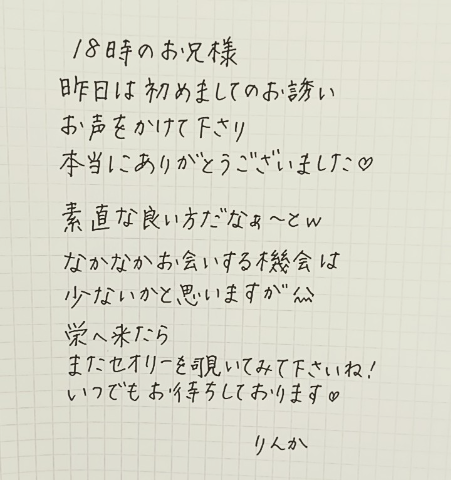 18時のお兄様
昨日は初めましてのお誘い
お声をかけて下さり
本当にありがとうございました♡
素直な良い方だなぁ〜とw
なかなかお会いする機会は
少ないかと思いますが
栄へ来たら
またセオリーを覗いてみて下さいね!
いつでもお待ちしております♡
りんか